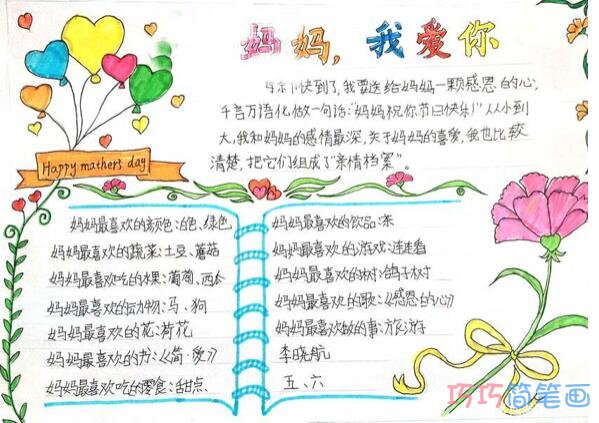 妈妈,我爱你
母亲节快到了,我要送给妈妈一颗感恩的心,
千言万语化做一句话:“妈妈祝你节日快乐!”从小到
大,我和妈妈的感情最深,关于妈妈的喜爱,我也比较
清楚,把它们组成了“亲情档案”。
Happy mathers day
妈妈最喜欢的颜色:白色、绿色
妈妈最喜欢的蔬菜:土豆、蘑菇
妈妈最喜欢吃的水果:葡萄、西瓜
妈妈最喜欢的动物:马、狗
妈妈最喜欢的花:荷花
妈妈最喜欢的书:《简·爱》
妈妈最喜欢吃的零食:甜点、
妈妈最喜欢的饮品:茶
妈妈最喜欢的游戏:连连看
妈妈最喜欢的树:鸽子树
妈妈最喜欢的歌:《感恩的心》
妈妈最喜欢做的事:旅游
李晓航
五、六
巧巧简笔画